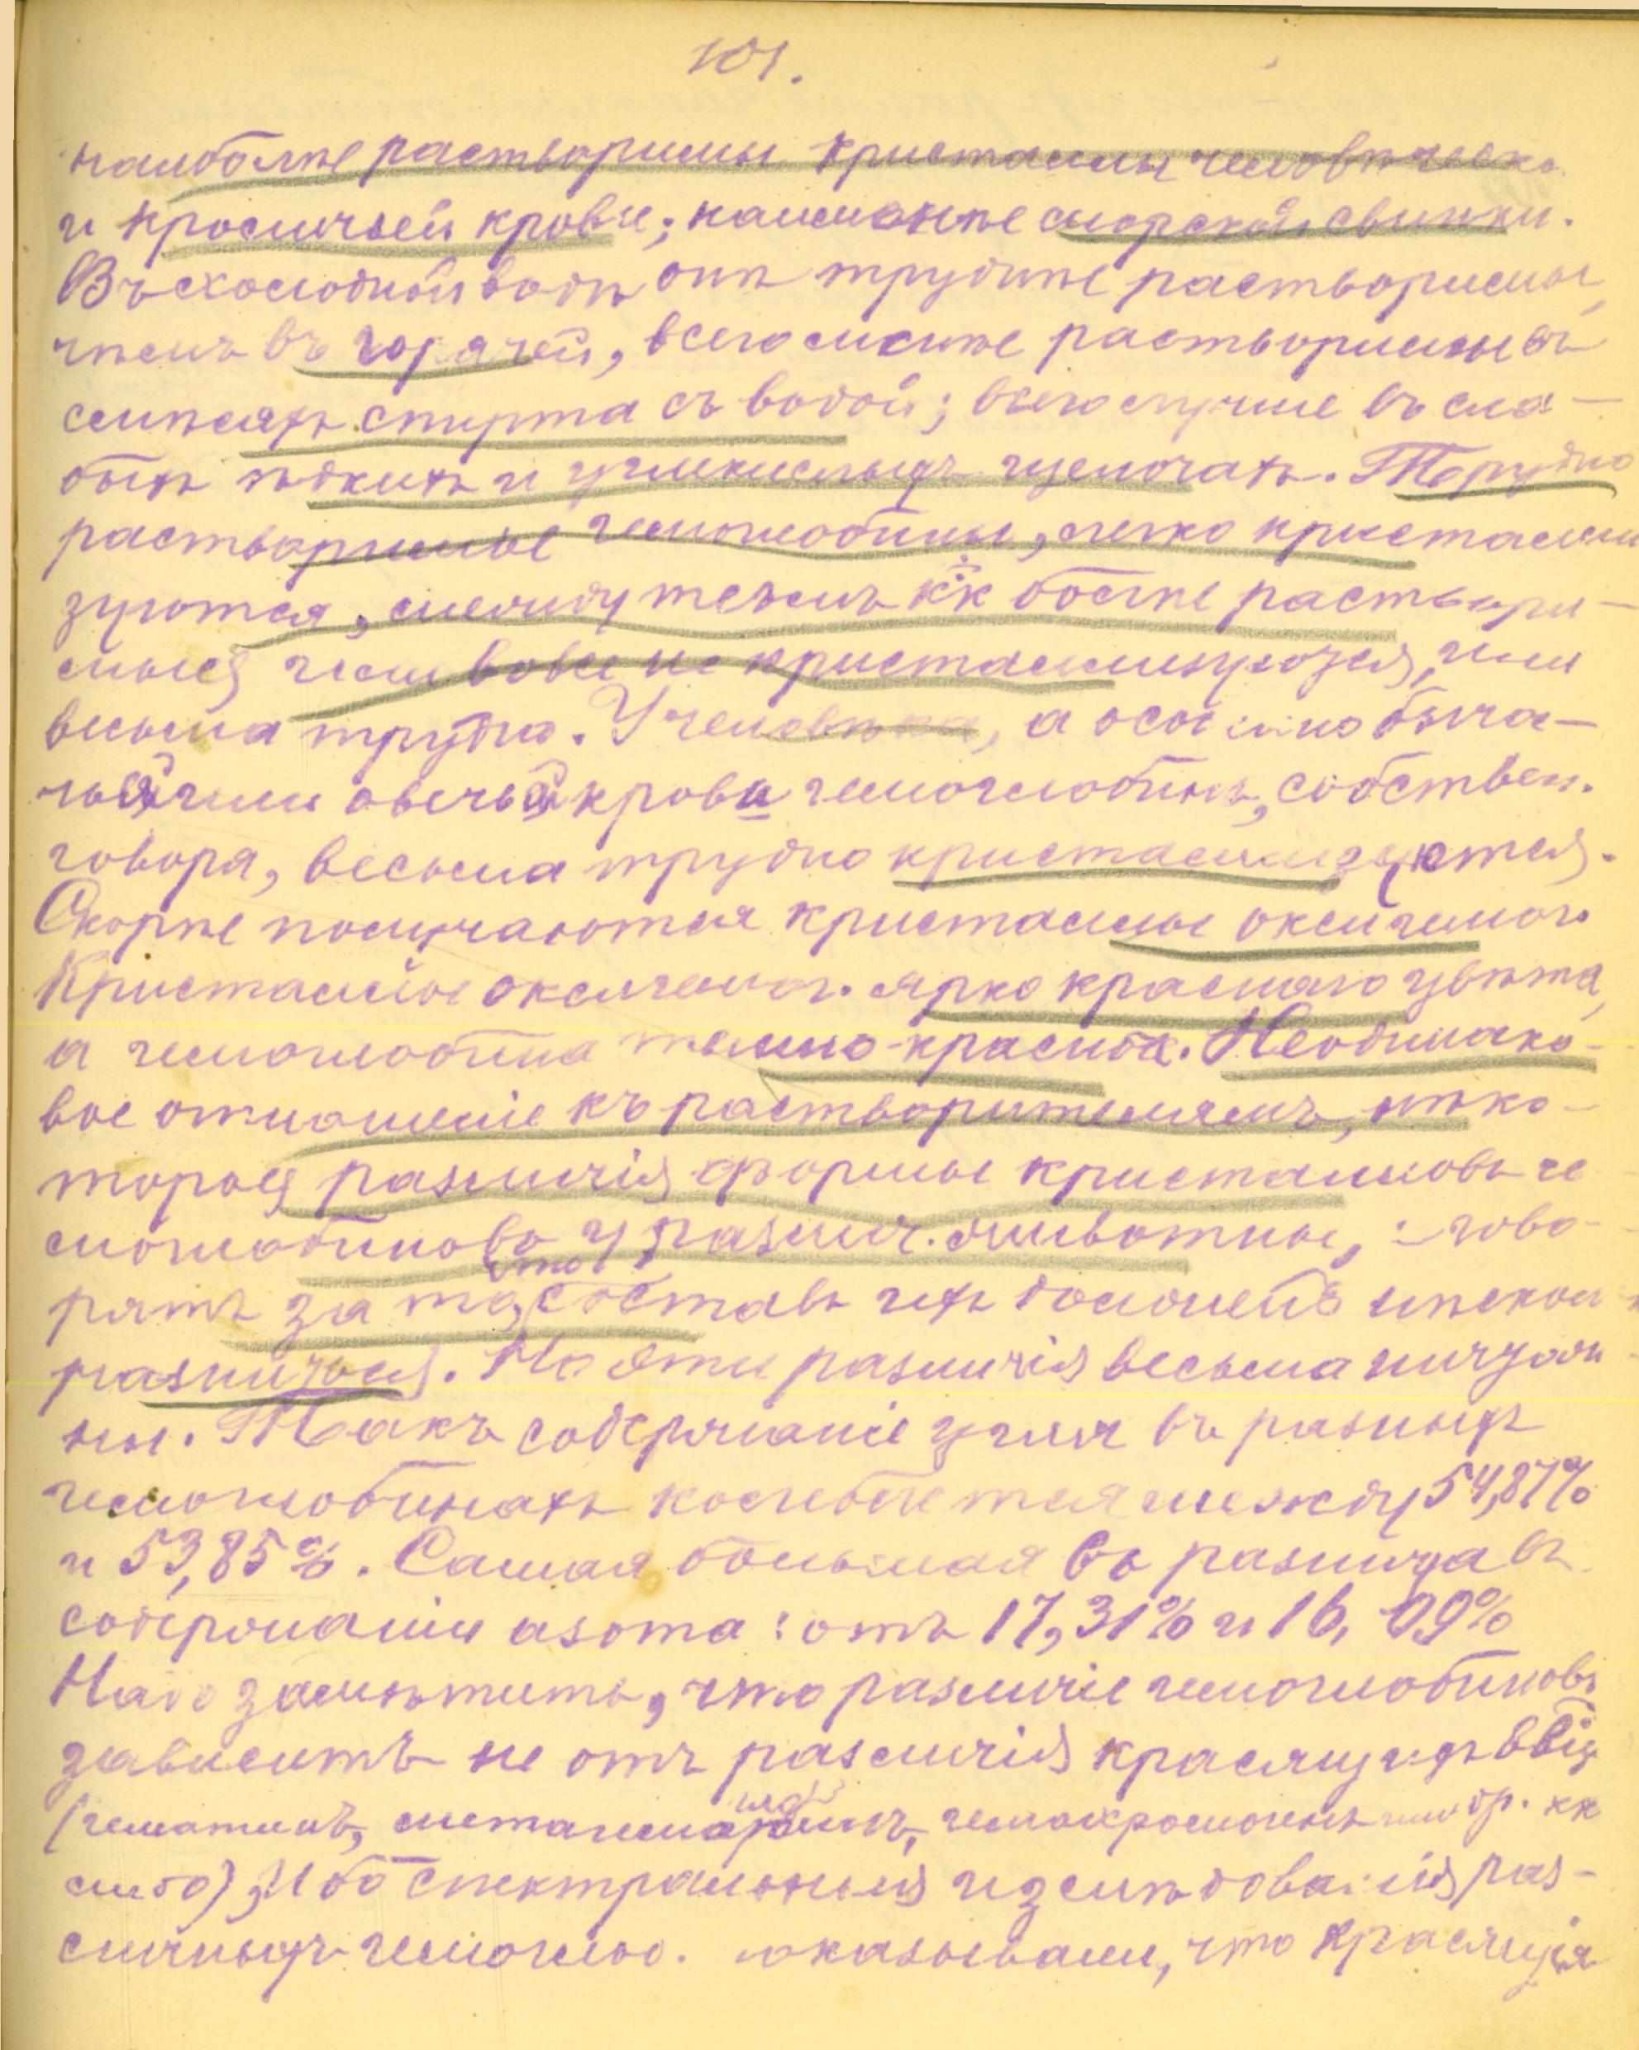 101.
наиболѣе растворимы кристаллы человѣческо
и кроличьей крови; наименѣе морской свинки.
Въ холодной водѣ они труднѣе растворимы,
чѣмъ въ горячей, всего менѣе растворимы въ
смѣсяхъ спирта съ водой; всего лучше въ сла-
быхъ ѣдкихъ и углекислыхъ щелочахъ. Трудно
растворимые гемоглобины, легко кристалли
зуются, между тѣмъ кк болѣе раствори-
мыя или вовсе не кристаллизуются, или
весьма трудно. У человѣка, а особенно быча-
чьей или овечьей крови гемоглобинъ, собствен.
говоря, весьма трудно кристаллизуются.
Скорѣе получаются кристаллы оксигемог.
Кристаллы оксигемог. ярко краснаго цвѣта,
а гемоглобина темно-красна. Неодинако-
вое отношеніе къ растворителямъ, нѣко-
торыя различія формы кристалловъ ге
моглобиновъ у различ. животныхъ, гово-
рятъ за то, что составъ ихъ долженъ нѣскол
различаться. Но эти различія весьма ничтож
ны. Такъ содержаніе угля въ разныхъ
гемоглобинахъ колеблется между 54,87%
и 53,85%. Самая большая разница въ
содержаніи азота: отъ 17,31% и 16,09%
Надо замѣтить, что различіе гемоглобиновъ
зависитъ не отъ различія красящихъ
(гематинъ, гемохромогенъ или др. кк
либо), Ибо спектральныя изслѣдованія раз-
личныхъ гемоглоб. показывали, что красящія